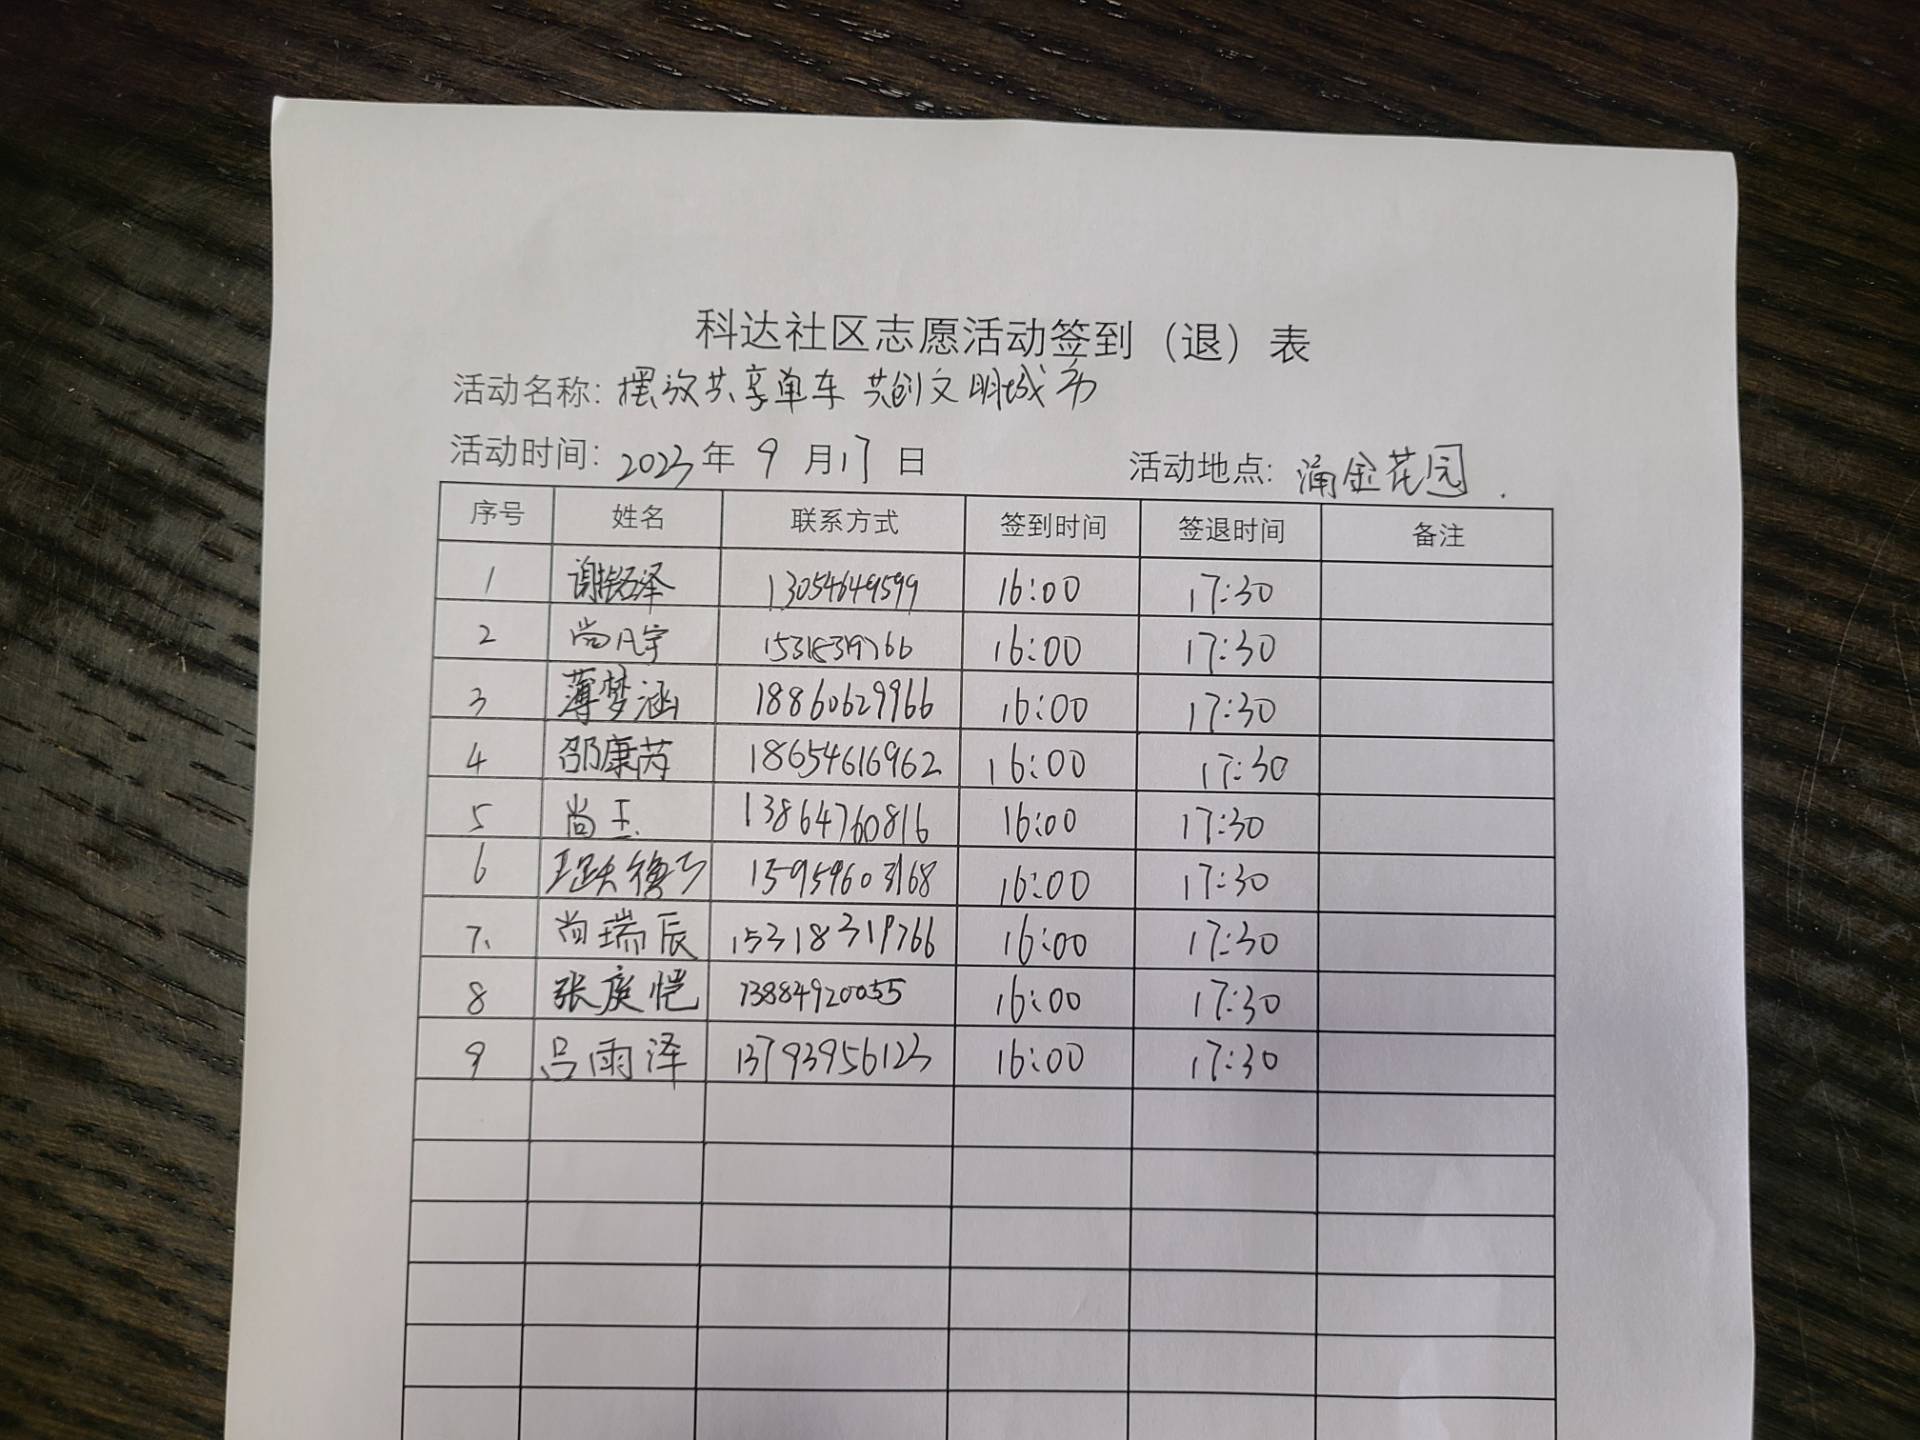 科达社区志愿活动签到（退）表
活动名称: 摆放共享单车 共创文明城市
活动时间: 2023年 9 月17 日 活动地点: 涌金花园.
序号 姓名 联系方式 签到时间 签退时间 备注
1 谢铭泽 13054649599 16:00 17:30
2 尚凡宇 16:00 17:30
3 薄梦涵 18860629966 16:00 17:30
4 邵康芮 18654616962 16:00 17:30
5 尚玉 13864760816 16:00 17:30
6 15959603168 16:00 17:30
7、 尚瑞辰 15318319766 16:00 17:30
8 张庭恺 13884920055 16:00 17:30
9 吕雨泽 13793956123 16:00 17:30